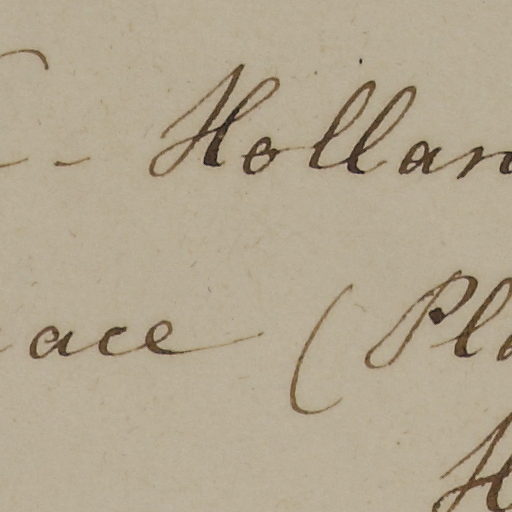 - Hollan
ace (Pla
H